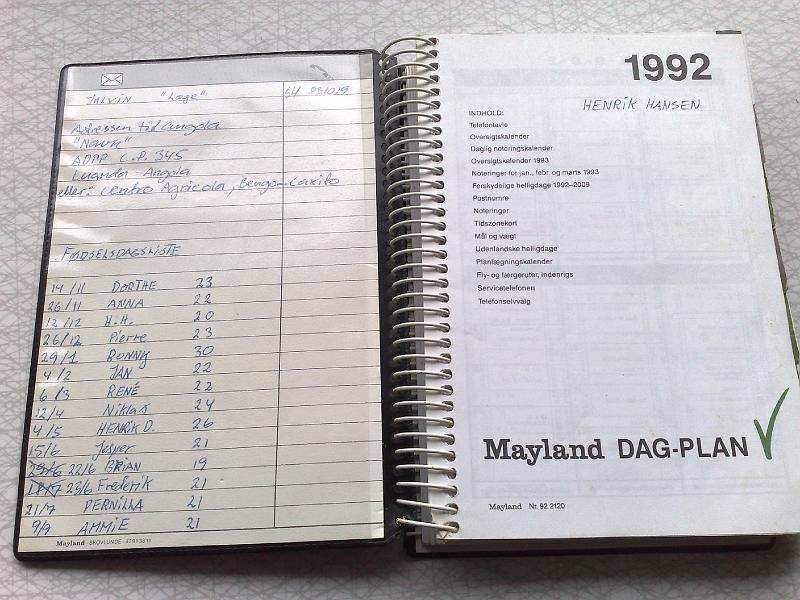 JALVIN "Læge" 64 831019
Adressen til Angola
"Navn"
ADPP C.P. 345
Luanda Angola
eller: Centro Agricola, Bengo-Caxito
FØDSELSDAGSLISTE
14/11 DORTHE 23
26/11 ANNA 22
12/12 H.H. 20
26/12 Pierre 23
29/1 RONNY 30
4/2 JAN 22
6/3 RENÉ 22
12/4 Niklas 24
4/5 HENRIK D. 26
15/6 Jesper 21
22/6 BRIAN 19
23/6 Frederik 21
21/7 PERNILLA 21
9/9 AMMIE 21
Mayland - SKOVLUNDE
1992
HENRIK HANSEN
INDHOLD:
Telefontavle
Oversigtskalender
Daglig noteringskalender
Oversigtskalender 1993
Noteringer for jan., febr. og marts 1993
Forskydelige helligdage 1992–2009
Postnumre
Noteringer
Tidszonekort
Mål og vægt
Udenlandske helligdage
Planlægningskalender
Fly- og færgeruter, indenrigs
Servicetelefonen
Telefonselvvalg
Mayland DAG-PLAN
Mayland Nr. 92 2120